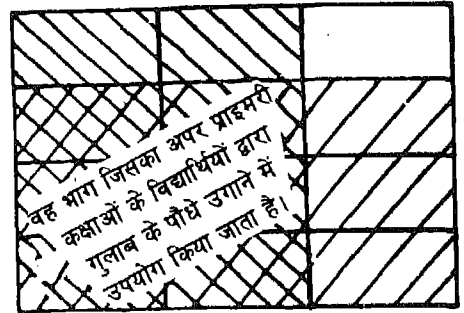 वह भाग जिसका अपर प्राइमरी
कक्षाओं के विद्यार्थियों द्वारा
गुलाब के पौधे उगाने में
उपयोग किया जाता है।